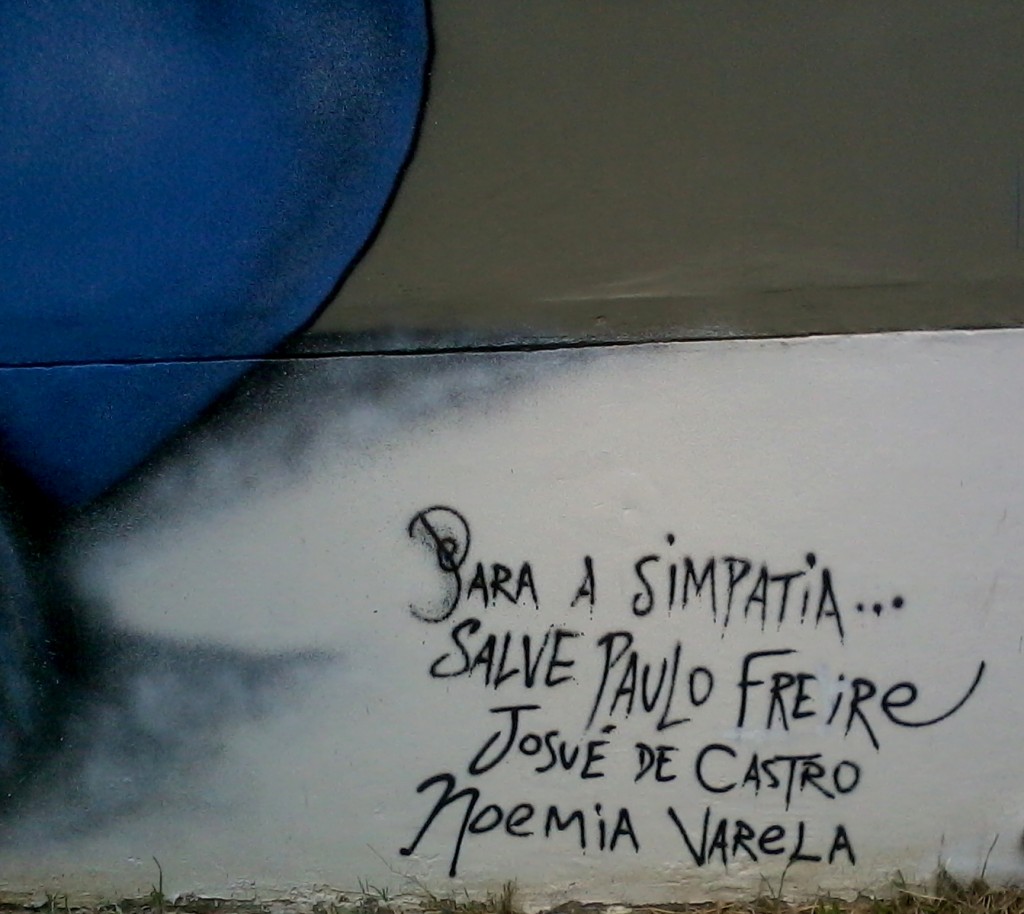 PARA A SiMPATiA...
SALVE PAULO FREiRe
JOSUÉ DE CASTRO
NoeMiA VAReLA